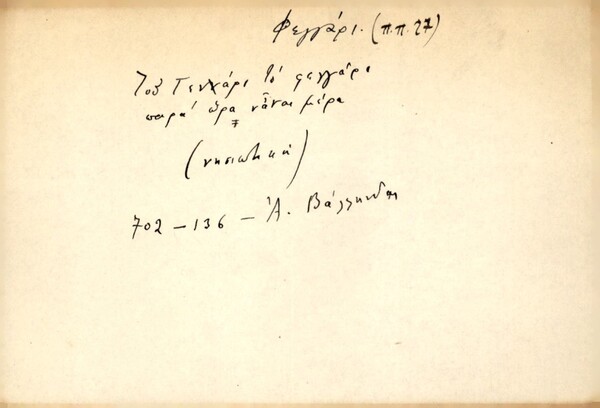 Φεγγάρι. (π.π. 27)
Τοῦ Γεννάρι τό φεγγάρι
παρά ὥρα νἆναι μέρα
(νησιωτική)
702 – 136 – Ἀ. Βάλληνδας